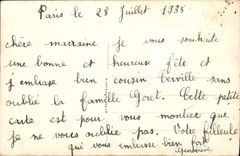 Paris le 28 Juillet 1938
chère marraine je vous souhaite
une bonne et heureuse fête et
j'embrasse bien cousin Terville sans
oublié la famille Goret. Cette petite
carte est pour vous montrer que
je ne vous oublie pas. Votre filleule
qui vous embrasse bien fort
Geneviève